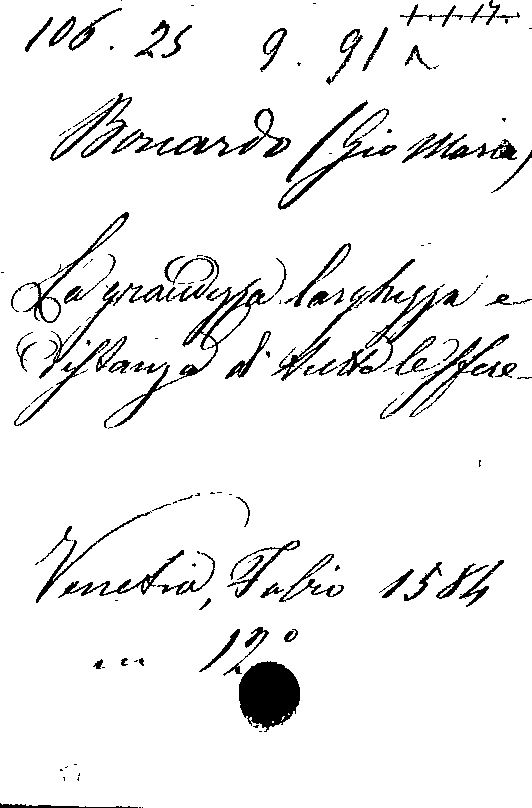 106. 25 9. 91
Bonardo (Gio Maria)
La grandezza larghezza e
distanza di tutte le sfere
Venetia, Fabio 1584
12°